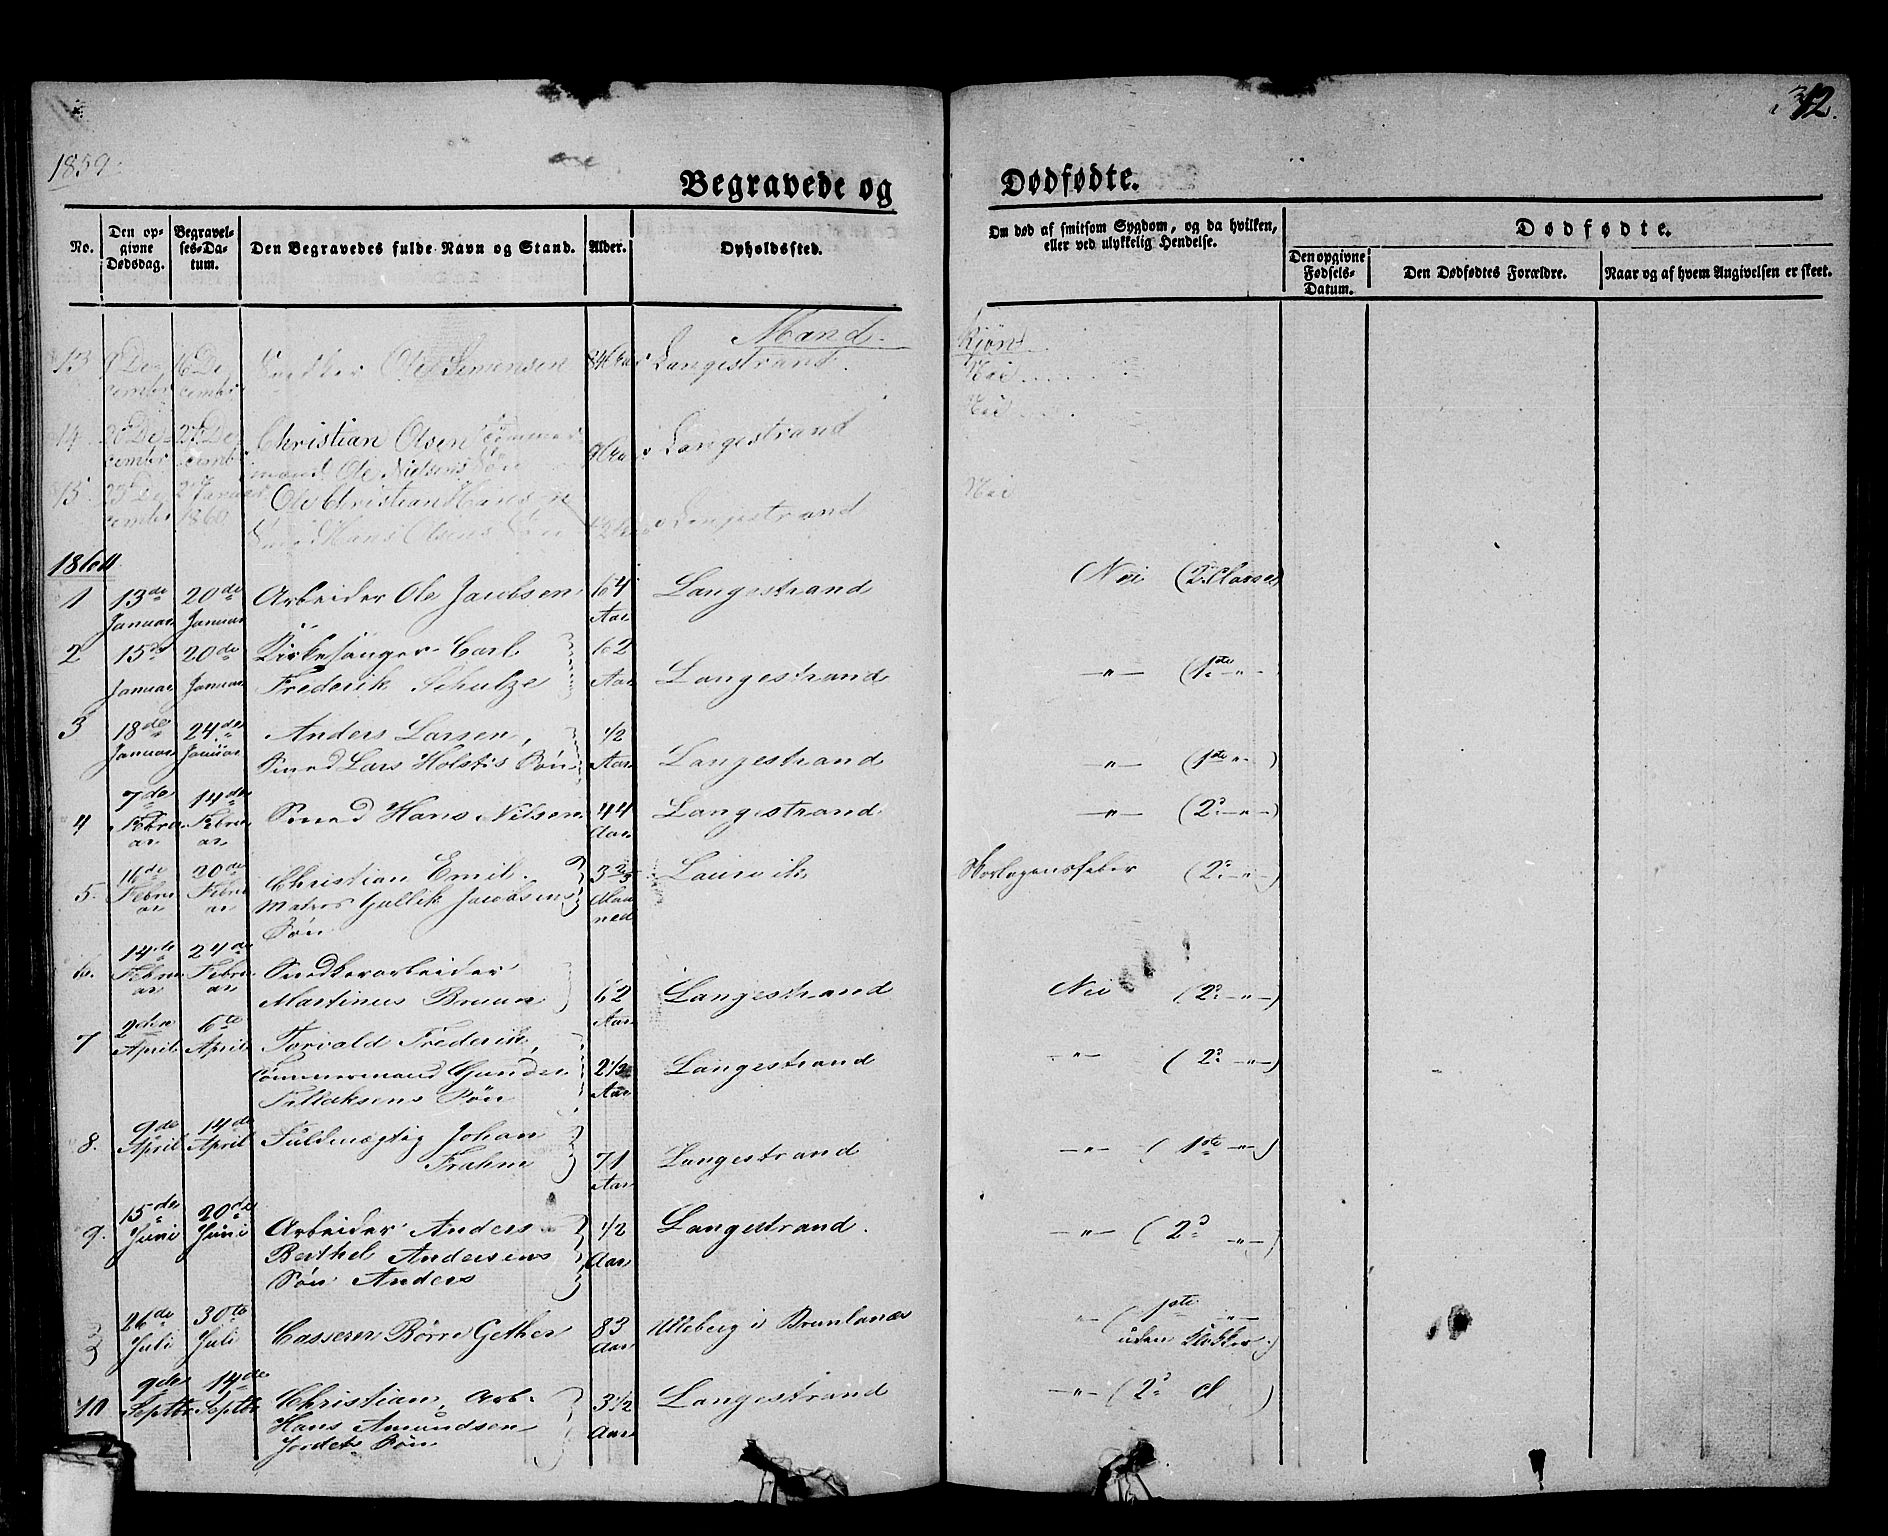 1859.
12.
Begravede og Dødfødte.
No.
Den opgivne Dødsdag.
Begravelses-Datum.
Den Begravedes fulde Navn og Stand.
Alder.
Opholdssted.
Om død af smitsom Sygdom, og da hvilken, eller ved ulykkelig Hendelse.
Dødfødte.
Den opgivne Fødsels-Datum.
Den Dødfødtes Forældre.
Naar og af hvem Angivelsen er skeet.
Mand Kjøn
13 9 December 16 December Snedker Ole Simensen Langestrand. Nei
14. 20 December 27 December Christian Olsen Tømmermand Ole Nielsens Søn Langestrand Nei
15. 23 December 2 Januar 1860 Ole Christian Hansen
Smed Hans Olsens Søn Langestrand Nei
1860
1 13de Januar 20de Januar Arbeider Ole Jacobsen 64 Aar Langestrand Nei (2. Classe)
2 15de Januar 20de Januar Kirkesanger Carl
Frederik Schulze 62 Aar Langestrand –„– (1ste –„–)
3 18de Januar 24de Januar Anders Larsen,
Smed Lars Holstis Søn 1/2 Aar Langestrand –„– (1ste –„–)
4 7de Februar 14de Februar Smed Hans Nilsen 44 Aar Langestrand. –„– (2. –„–)
5. 16de Februar 20de Februar Christian Emil.
Matros Gullik Jacobsens
Søn 3 Maaned Laurvik Skarlagensfeber (2. –„–)
6. 14de Februar 24de Februar Snedkerarbeider
Martinus Bruun 62 Aar Langestrand Nei (2. –„–)
7 2den April 6te April Torvald Frederik,
Tømmermand Gunder
Tellaksens Søn 2 1/2 Aar Langestrand –„– (2. –„–)
8. 9de April 14de April Fuldmægtig Johan
Frahm 71 Aar Langestrand –„– (1ste –„–)
9. 15de Juni 20de Juni Arbeider Anders
Berthel Andersens
Søn Anders 1/2 Aar Langestrand. –„– (2. –„–)
26de Juli 30te Juli Casserer Børre Gether 83 Aar Alleberg i Brunlanæs –„– (1ste –„–
uden Klokker.)
10 9de Septbr 14de Septbr Christian, Arb.
Hans Amundsen
Jordets Søn 3 1/2 Aar Langestrand –„– (2. cl)